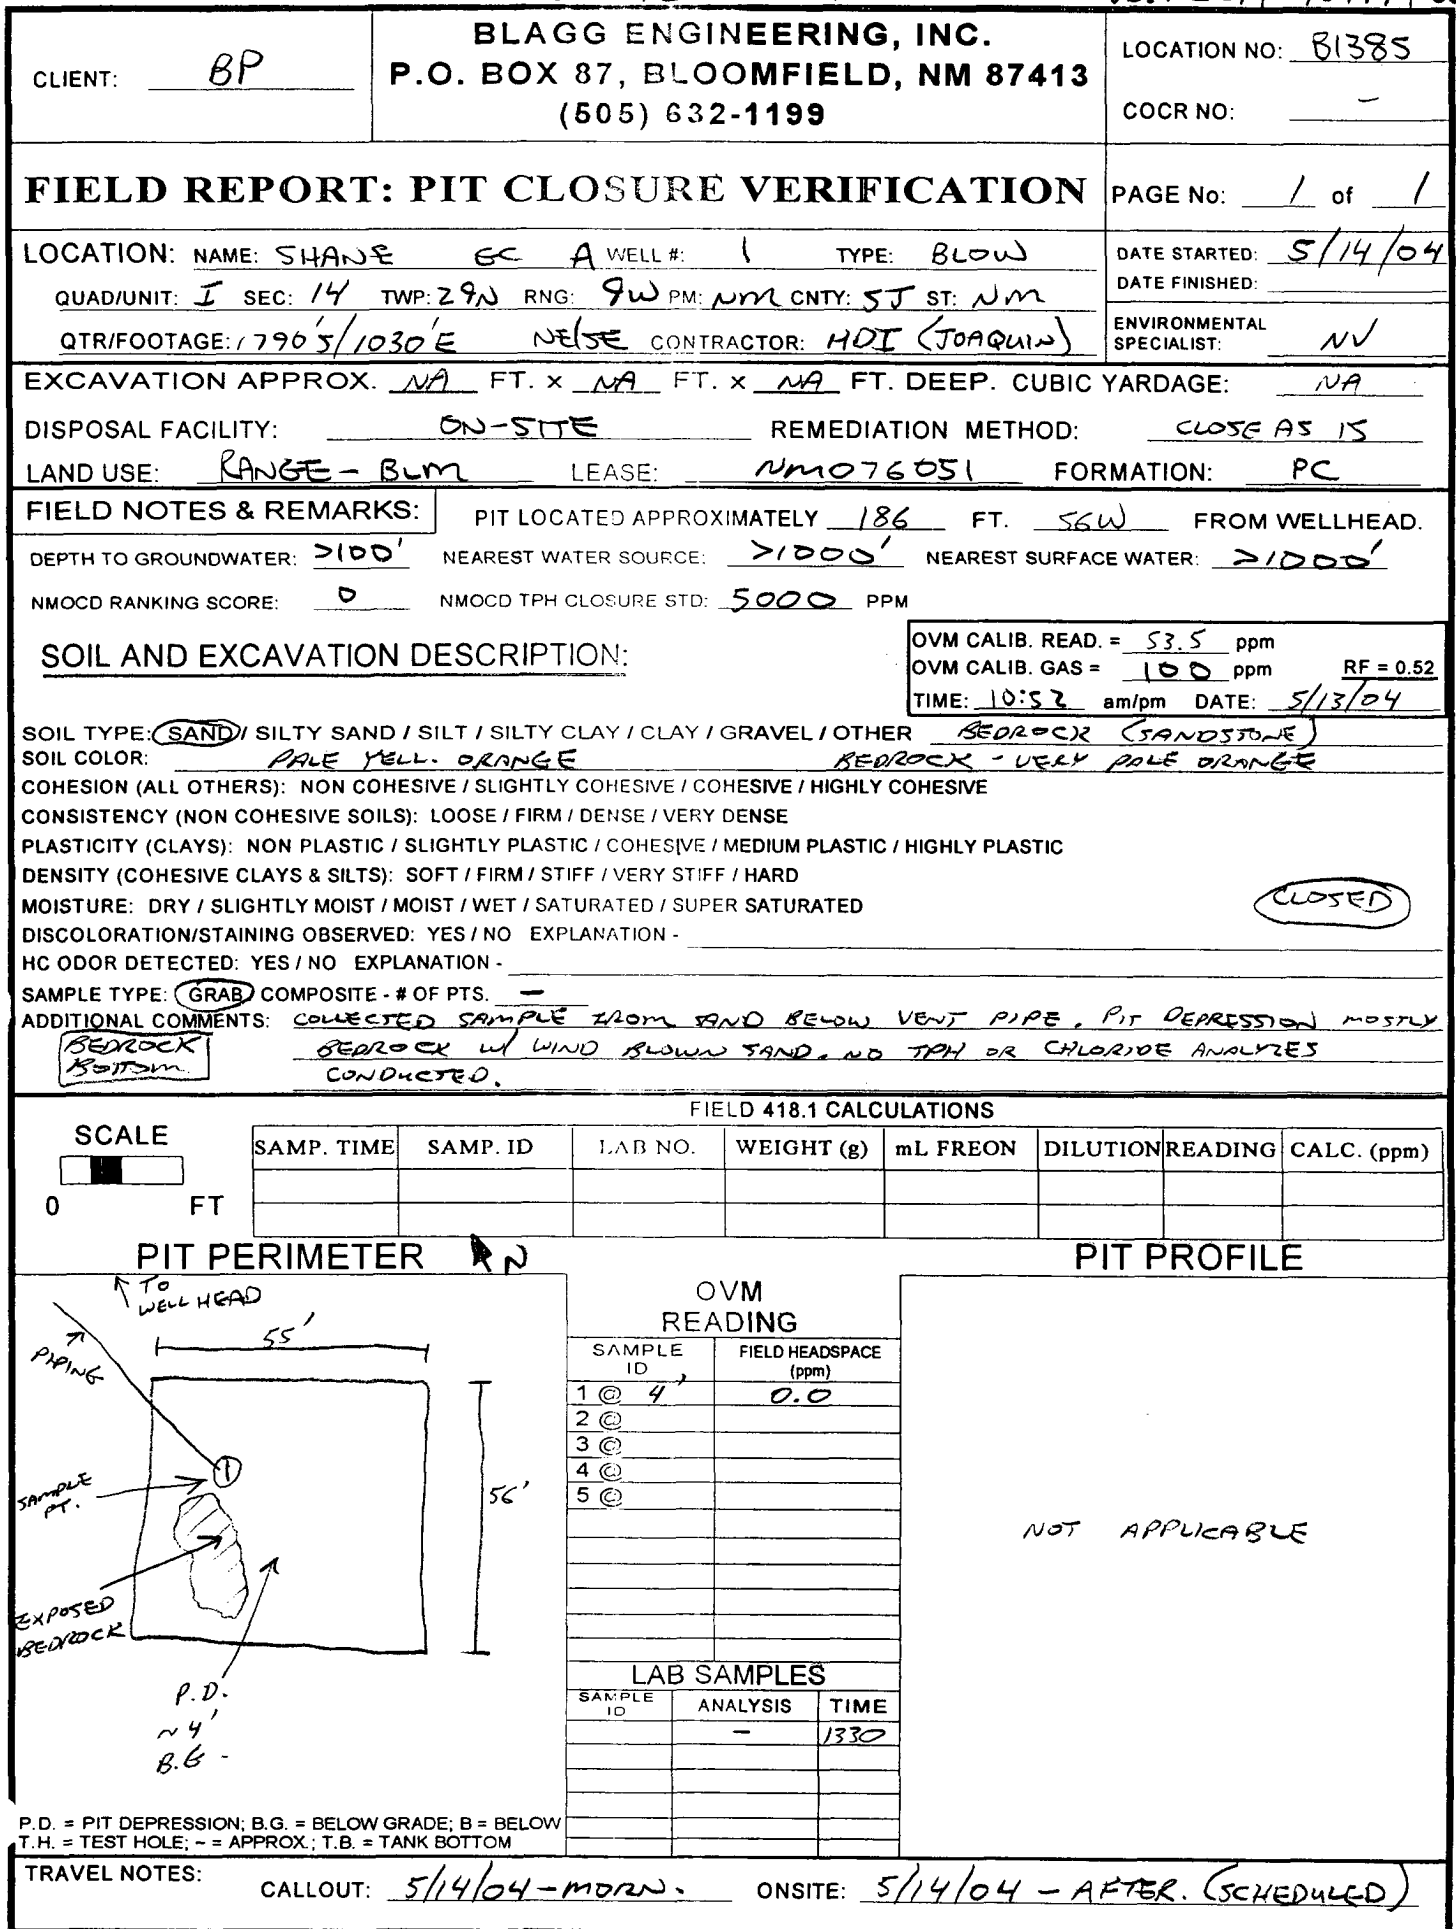 BLAGG ENGINEERING, INC.
CLIENT: BP
P.O. BOX 87, BLOOMFIELD, NM 87413
(505) 632-1199
LOCATION NO: B1385
COCR NO: -
FIELD REPORT: PIT CLOSURE VERIFICATION
PAGE No: 1 of 1
LOCATION: NAME: SHANE GC A WELL #: 1 TYPE: BLOW
QUAD/UNIT: I SEC: 14 TWP: 29N RNG: 9W PM: NM CNTY: SJ ST: NM
QTR/FOOTAGE: 1790'S/1030'E NE/SE CONTRACTOR: HDI (JOAQUIN)
DATE STARTED: 5/14/04
DATE FINISHED:
ENVIRONMENTAL
SPECIALIST: NV
EXCAVATION APPROX. NA FT. x NA FT. x NA FT. DEEP. CUBIC YARDAGE: NA
DISPOSAL FACILITY: ON-SITE REMEDIATION METHOD: CLOSE AS IS
LAND USE: RANGE - BLM LEASE: NM076051 FORMATION: PC
FIELD NOTES & REMARKS: PIT LOCATED APPROXIMATELY 186 FT. S6W FROM WELLHEAD.
DEPTH TO GROUNDWATER: >100' NEAREST WATER SOURCE: >1000' NEAREST SURFACE WATER: >1000'
NMOCD RANKING SCORE: 0 NMOCD TPH CLOSURE STD: 5000 PPM
SOIL AND EXCAVATION DESCRIPTION:
OVM CALIB. READ. = 53.5 ppm
OVM CALIB. GAS = 100 ppm RF = 0.52
TIME: 10:52 am/pm DATE: 5/13/04
SOIL TYPE: SAND / SILTY SAND / SILT / SILTY CLAY / CLAY / GRAVEL / OTHER BEDROCK (SANDSTONE)
SOIL COLOR: PALE YELL. ORANGE BEDROCK - VERY PALE ORANGE
COHESION (ALL OTHERS): NON COHESIVE / SLIGHTLY COHESIVE / COHESIVE / HIGHLY COHESIVE
CONSISTENCY (NON COHESIVE SOILS): LOOSE / FIRM / DENSE / VERY DENSE
PLASTICITY (CLAYS): NON PLASTIC / SLIGHTLY PLASTIC / COHESIVE / MEDIUM PLASTIC / HIGHLY PLASTIC
DENSITY (COHESIVE CLAYS & SILTS): SOFT / FIRM / STIFF / VERY STIFF / HARD
MOISTURE: DRY / SLIGHTLY MOIST / MOIST / WET / SATURATED / SUPER SATURATED
CLOSED
DISCOLORATION/STAINING OBSERVED: YES / NO EXPLANATION -
HC ODOR DETECTED: YES / NO EXPLANATION -
SAMPLE TYPE: GRAB / COMPOSITE - # OF PTS. -
ADDITIONAL COMMENTS: COLLECTED SAMPLE FROM SAND BELOW VENT PIPE. PIT DEPRESSION MOSTLY
BEDROCK BOTTOM
BEDROCK W/ WIND BLOWN SAND. NO TPH OR CHLORIDE ANALYZES
CONDUCTED.
FIELD 418.1 CALCULATIONS
SCALE
0 FT
SAMP. TIME SAMP. ID LAB NO. WEIGHT (g) mL FREON DILUTION READING CALC. (ppm)
PIT PERIMETER N
TO
WELL HEAD
PIPING
55'
56'
1
SAMPLE
PT.
EXPOSED
BEDROCK
P.D.
~4'
B.G -
OVM
READING
SAMPLE ID FIELD HEADSPACE (ppm)
1 @ 4' 0.0
2 @
3 @
4 @
5 @
LAB SAMPLES
SAMPLE ID ANALYSIS TIME
- 1330
PIT PROFILE
NOT APPLICABLE
P.D. = PIT DEPRESSION; B.G. = BELOW GRADE; B = BELOW
T.H. = TEST HOLE; ~ = APPROX.; T.B. = TANK BOTTOM
TRAVEL NOTES: CALLOUT: 5/14/04 - MORN. ONSITE: 5/14/04 - AFTER. (SCHEDULED)